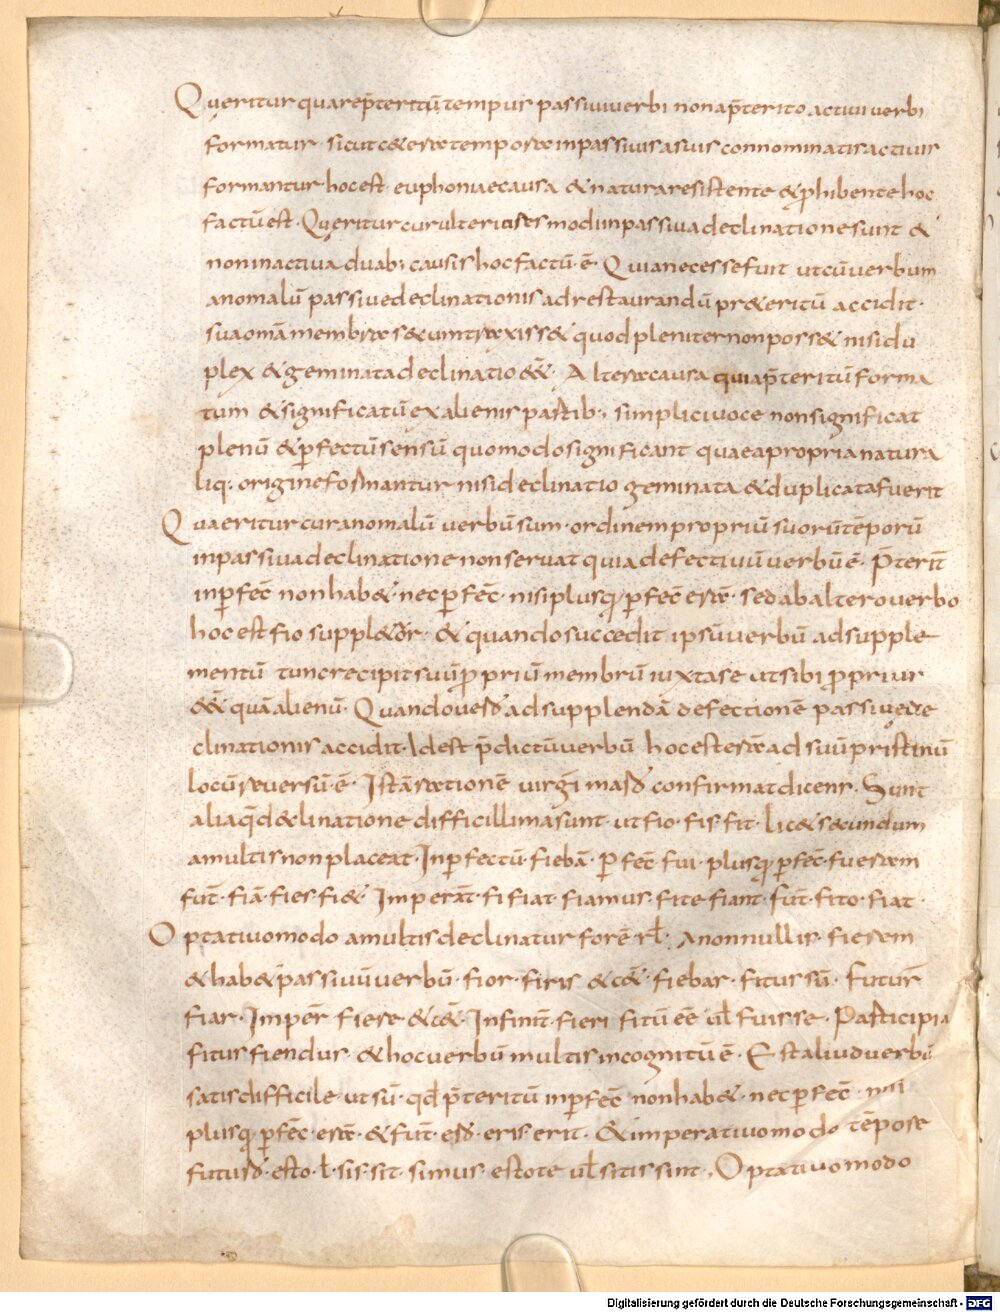 Queritur quare p̄teritū tempus passiui uerbi non a p̄terito actiui uerbi
formatur · sicut cetera tempora in passiuis a suis connominatis actiuis
formantur hoc est euphoniae causa & natura resistente & p̄hibente hoc
factū est · Queritur cur ulteriores modi in passiua declinatione sunt &
non in actiua duab; causis hoc factū ē · Quia necesse fuit ut cū uerbum
anomalū passiue declinationis ad restaurandū pr&eritū accidit ·
sua omā membra secum traxiss& quod pleniter non poss& nisi du
plex & geminata declinatio ēē& · Altera causa quia p̄teritū forma
tum & significatū ex alienis partib; simplici uoce non significat
plenū & ꝑfectū sensū quomodo significant quae a propria natura
liq; origine formantur nisi declinatio geminata & duplicata fuerit
Quaeritur cur anomalū uerbū sum · ordinem propriū suorū tēporū
in passiua declinatione non seruat quia defectiuū uerbū ē · P̄terit̄
inꝑfec̄ non hab& · nec ꝑfec̄ · nisi plusq; ꝑfec̄ erā · sed ab altero uerbo
hoc est fio suppletur · & quando succedit ipsū uerbū ad supple
mentū tunc recipit suū ꝓpriū membrū iuxta se ut sibi ꝓprius
ēē& quā alienū · Quando uero ad supplendā defectionē passiue de
clinationis accidit · Id est p̄dictū uerbū hoc est eram ad suū pristinū
locū reuersū ē · Istā rationē uirgi maro confirmat dicens · Sunt
alia q̄ declinatione difficillima sunt · ut fio · fis fit · lic& secundum
a multis non placeat · Inꝑfectū · fiebā · Perfec̄ fui · plusq; ꝑfec̄ · fueram
fut̄ · fiā · fies fi& · Imperat̄ · fi fiat fiamus · fite fiant · fut̄ · fito · fiat ·
Optatiuo modo a multis declinatur forē rł · A nonnullis · fierem
& hab& passiuū uerbū · fior · firis & c& · fiebar · fitus sū · Futur̄
fiar · Imper̄ fiere & c& · Infinit̄ · fieri fitū ēē uł fuisse · Participia
fitus fiendus · & hoc uerbū multis incognitū ē · Est aliud uerbū
satis difficile · ut sū · qd p̄teritū inꝑfec̄ non hab& · nec ꝑfec̄ · nisi
plusq; ꝑfec̄ · erā · & fut̄ · ero · eris erit · & imperatiuo modo tēpore
futuro · esto · ł sis sit · simus estote uł sitis sint · Optatiuo modo
Digitalisierung gefördert durch die Deutsche Forschungsgemeinschaft - DFG